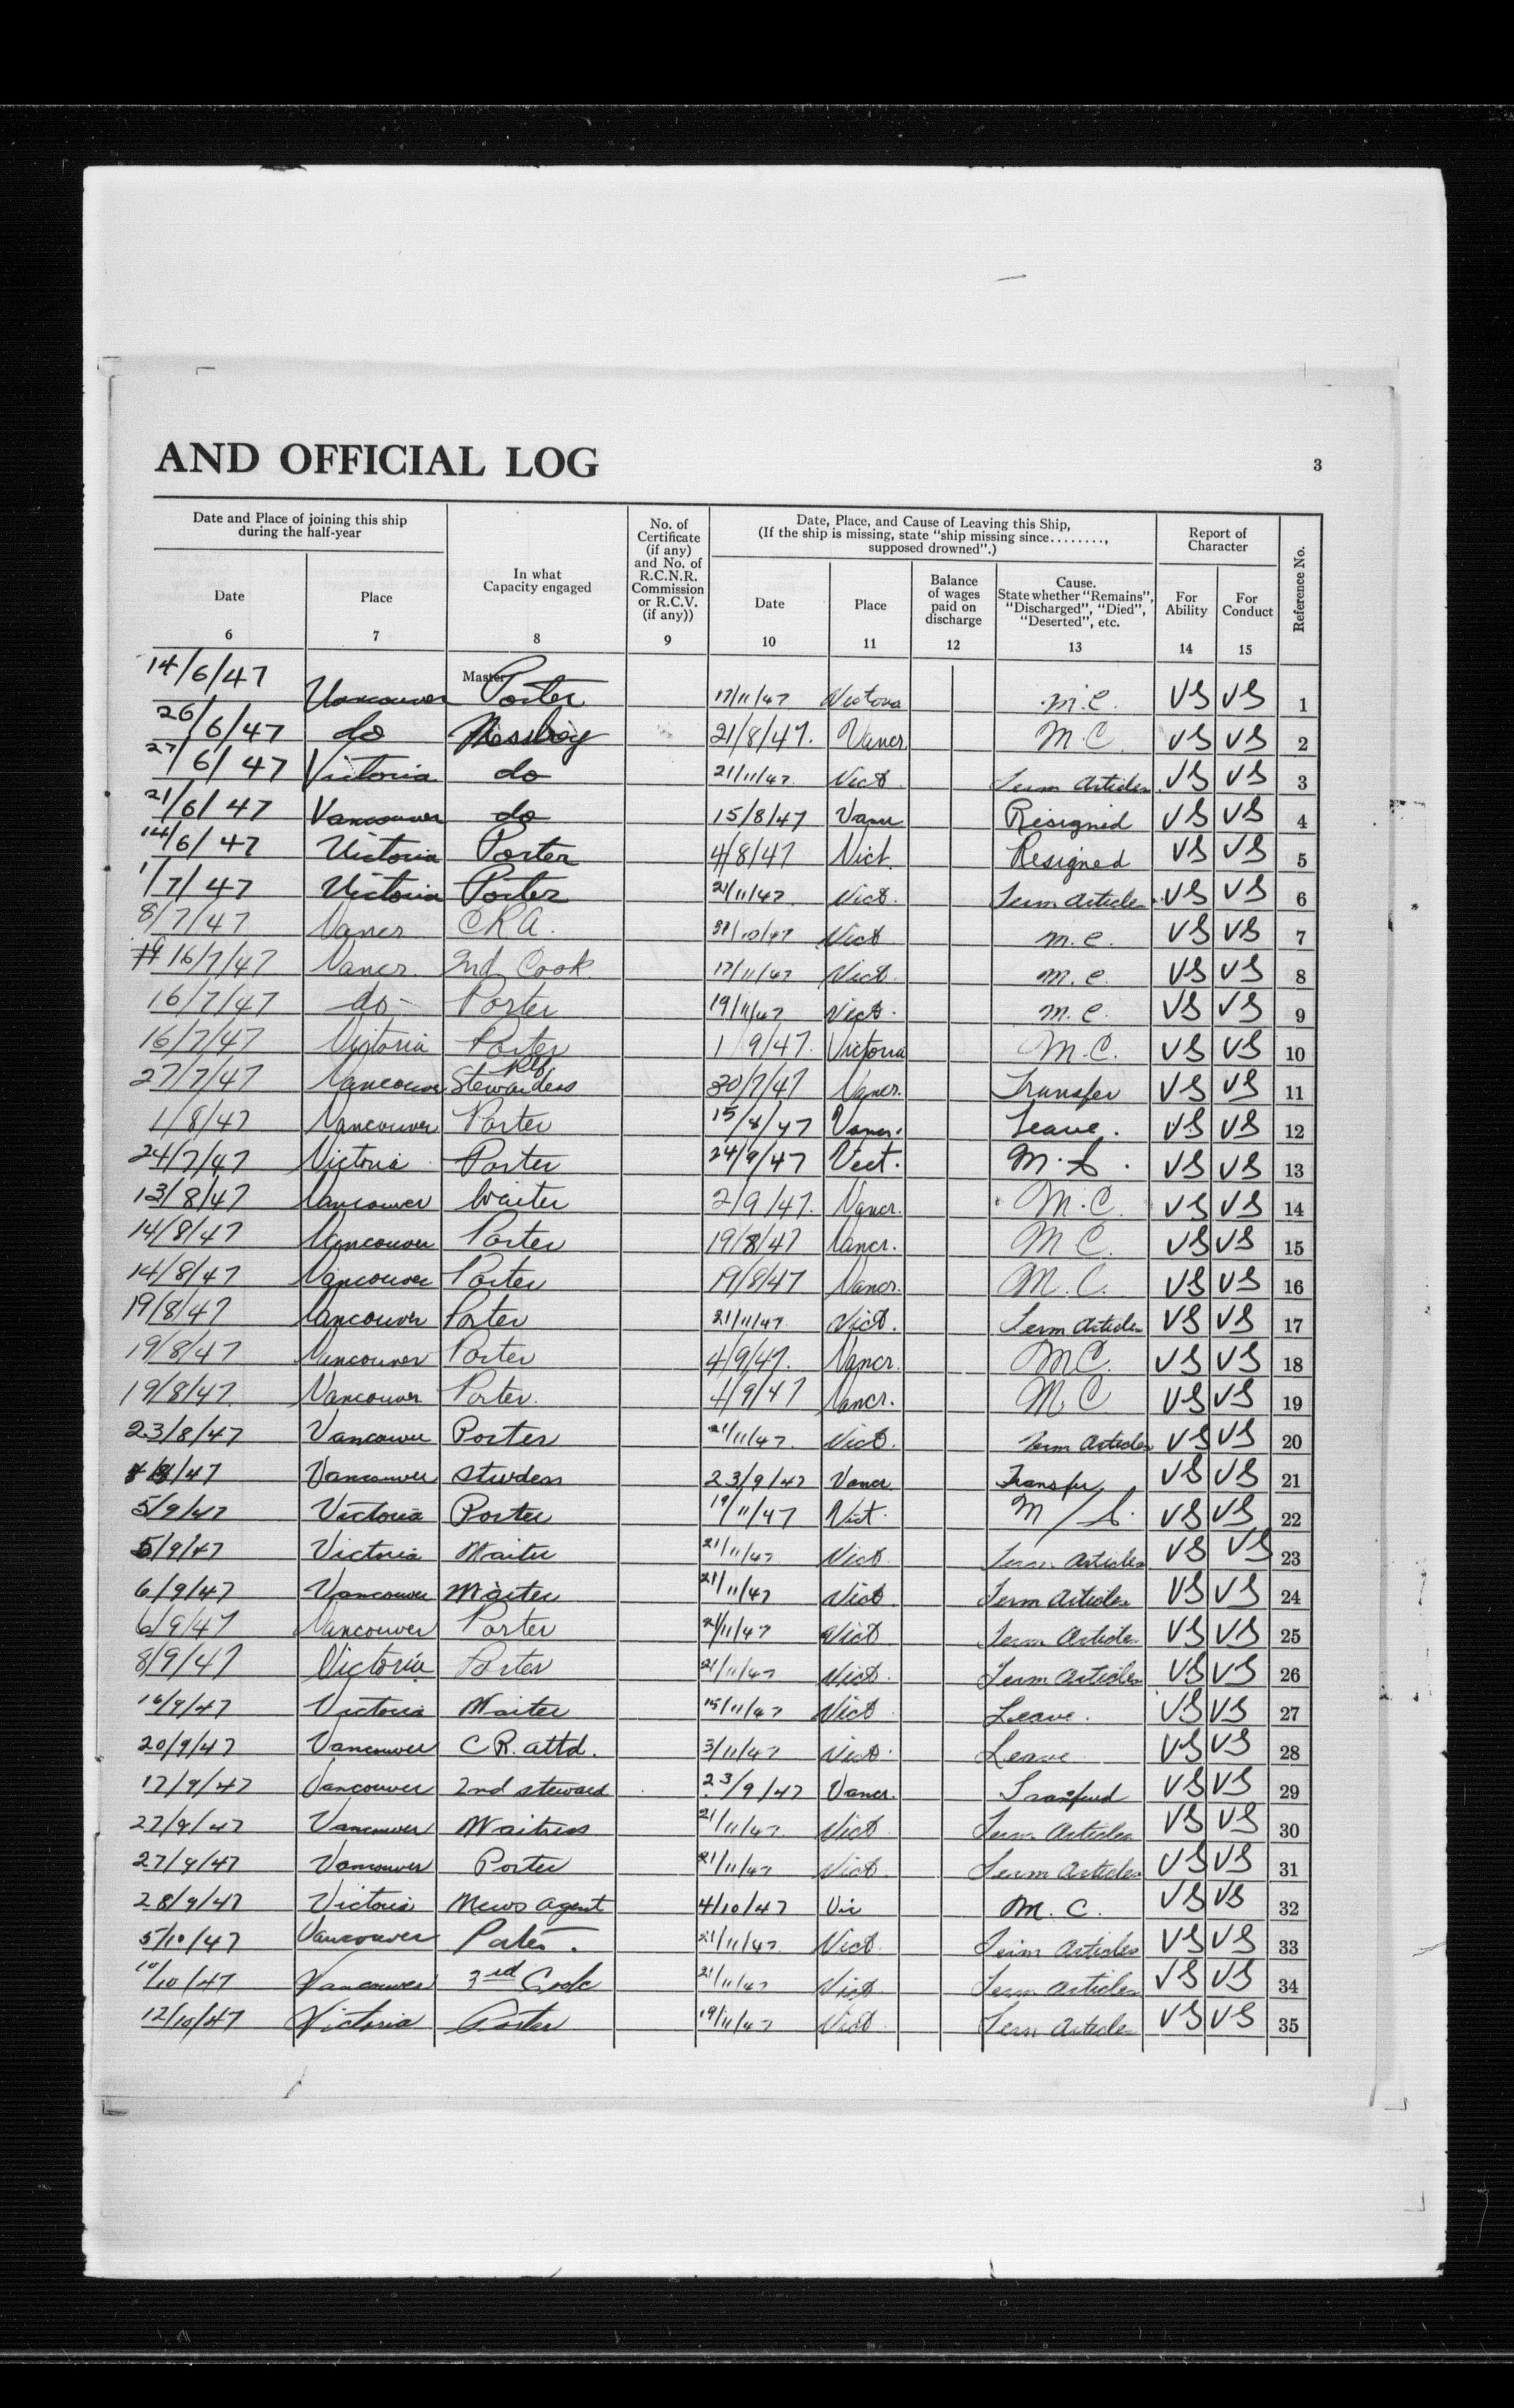 AND OFFICIAL LOG
3
Date and Place of joining this ship during the half-year
In what Capacity engaged
No. of Certificate (if any) and No. of R.C.N.R. Commission or R.C.V. (if any))
Date, Place, and Cause of Leaving this Ship, (If the ship is missing, state "ship missing since........, supposed drowned".)
Report of Character
Reference No.
Date Place Date Place Balance of wages paid on discharge Cause. State whether "Remains", "Discharged", "Died", "Deserted", etc. For Ability For Conduct
6 7 8 9 10 11 12 13 14 15
14/6/47 Vancouver Master Porter 17/11/47 Victoria M.C. VS VS 1
26/6/47 do Messboy 21/8/47. Vancr M.C. VS VS 2
27/6/47 Victoria do 21/11/47. Vict. Term Articles VS VS 3
21/6/47 Vancouver do 15/8/47 Vanc Resigned VS VS 4
14/6/47 Victoria Porter 4/8/47 Vict. Resigned VS VS 5
1/7/47 Victoria Porter 21/11/47. Vict. Term Articles VS VS 6
8/7/47 Vancr C R A. /10/47 Vict M.C. VS VS 7
16/7/47 Vancr. 2nd Cook 17/11/47 Vict. M.C. VS VS 8
16/7/47 do- Porter 19/11/47 Vict. M.C. VS VS 9
16/7/47 Victoria Porter 1/9/47. Victoria M.C. VS VS 10
27/7/47 Vancouver Stewardess 30/7/47 Vancr. Transfer VS VS 11
1/8/47 Vancouver Porter 15/8/47 Vancr. Leave. VS VS 12
24/7/47 Victoria Porter 24/9/47 Vict. M.C. VS VS 13
13/8/47 Vancouver Waiter 2/9/47. Vancr. M.C. VS VS 14
14/8/47 Vancouver Porter 19/8/47 Vancr. M C. VS VS 15
14/8/47 Vancouver Porter 19/8/47 Vancr. M.C. VS VS 16
19/8/47 Vancouver Porter 21/11/47. Vict. Term Articles VS VS 17
19/8/47 Vancouver Porter 4/9/47. Vancr. M C. VS VS 18
19/8/47. Vancouver Porter. 4/9/47 Vancr. M.C VS VS 19
23/8/47 Vancouver Porter 21/11/47. Vict. Term Articles VS VS 20
/47 Vancouver Stwdess 23/9/47 Vancr Transfer VS VS 21
5/9/47 Victoria Porter 19/11/47 Vict. M/C. VS VS 22
5/9/47 Victoria Waiter 21/11/47 Vict Term Articles VS VS 23
6/9/47 Vancouver Waiter 21/11/47 Vict. Term Articles VS VS 24
6/9/47 Vancouver Porter 21/11/47 Vict Term Articles VS VS 25
8/9/47 Victoria Porter 21/11/47 Vict. Term Articles VS VS 26
16/9/47 Victoria Waiter 15/11/47 Vict Leave. VS VS 27
20/9/47 Vancouver C R. attd. 3/11/47 Vict. Leave VS VS 28
17/9/47 Vancouver 2nd steward 23/9/47 Vancr. VS VS 29
27/9/47 Vancouver Waitress 21/11/47. Vict Term Articles VS VS 30
27/9/47 Vancouver Porter 21/11/47 Vict. Term Articles VS VS 31
28/9/47 Victoria News agent 4/10/47 Vic M. C. VS VS 32
5/10/47 Vancouver Porter. 21/11/47. Vict. Term Articles VS VS 33
10/10/47 Vancouver 3rd Cook 21/11/47 Vict Term Articles VS VS 34
12/10/47 Victoria Porter 19/11/47 Vict Term Articles VS VS 35